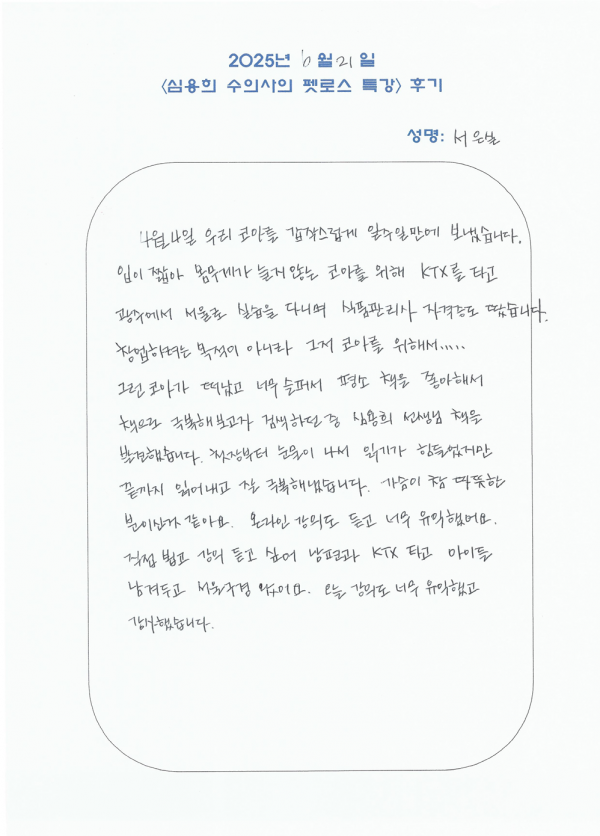 2025년 6월 21일
<심용희 수의사의 펫로스 특강> 후기
성명: 서은실
4월 4일 우리 코아를 갑작스럽게 일주일만에 보냈습니다.
입이 짧아 몸무게가 늘지않는 코아를 위해 KTX를 타고
광주에서 서울로 실습을 다니며 식품관리사 자격증도 땄습니다.
창업하려는 목적이 아니라 그저 코아를 위해서.....
그런 코아가 떠났고 너무 슬퍼서 평소 책을 좋아해서
책으로 극복해보고자 검색하던 중 심용희 선생님 책을
발견했습니다. 첫장부터 눈물이 나서 읽기가 힘들었지만
끝까지 읽어내고 잘 극복해냈습니다. 가슴이 참 따뜻한
분이신거 같아요. 온라인 강의도 듣고 너무 유익했어요.
직접 뵙고 강의 듣고 싶어 남편과 KTX 타고 아이들
남겨두고 서울구경 왔어요. 오늘 강의도 너무 유익했고
감사했습니다.